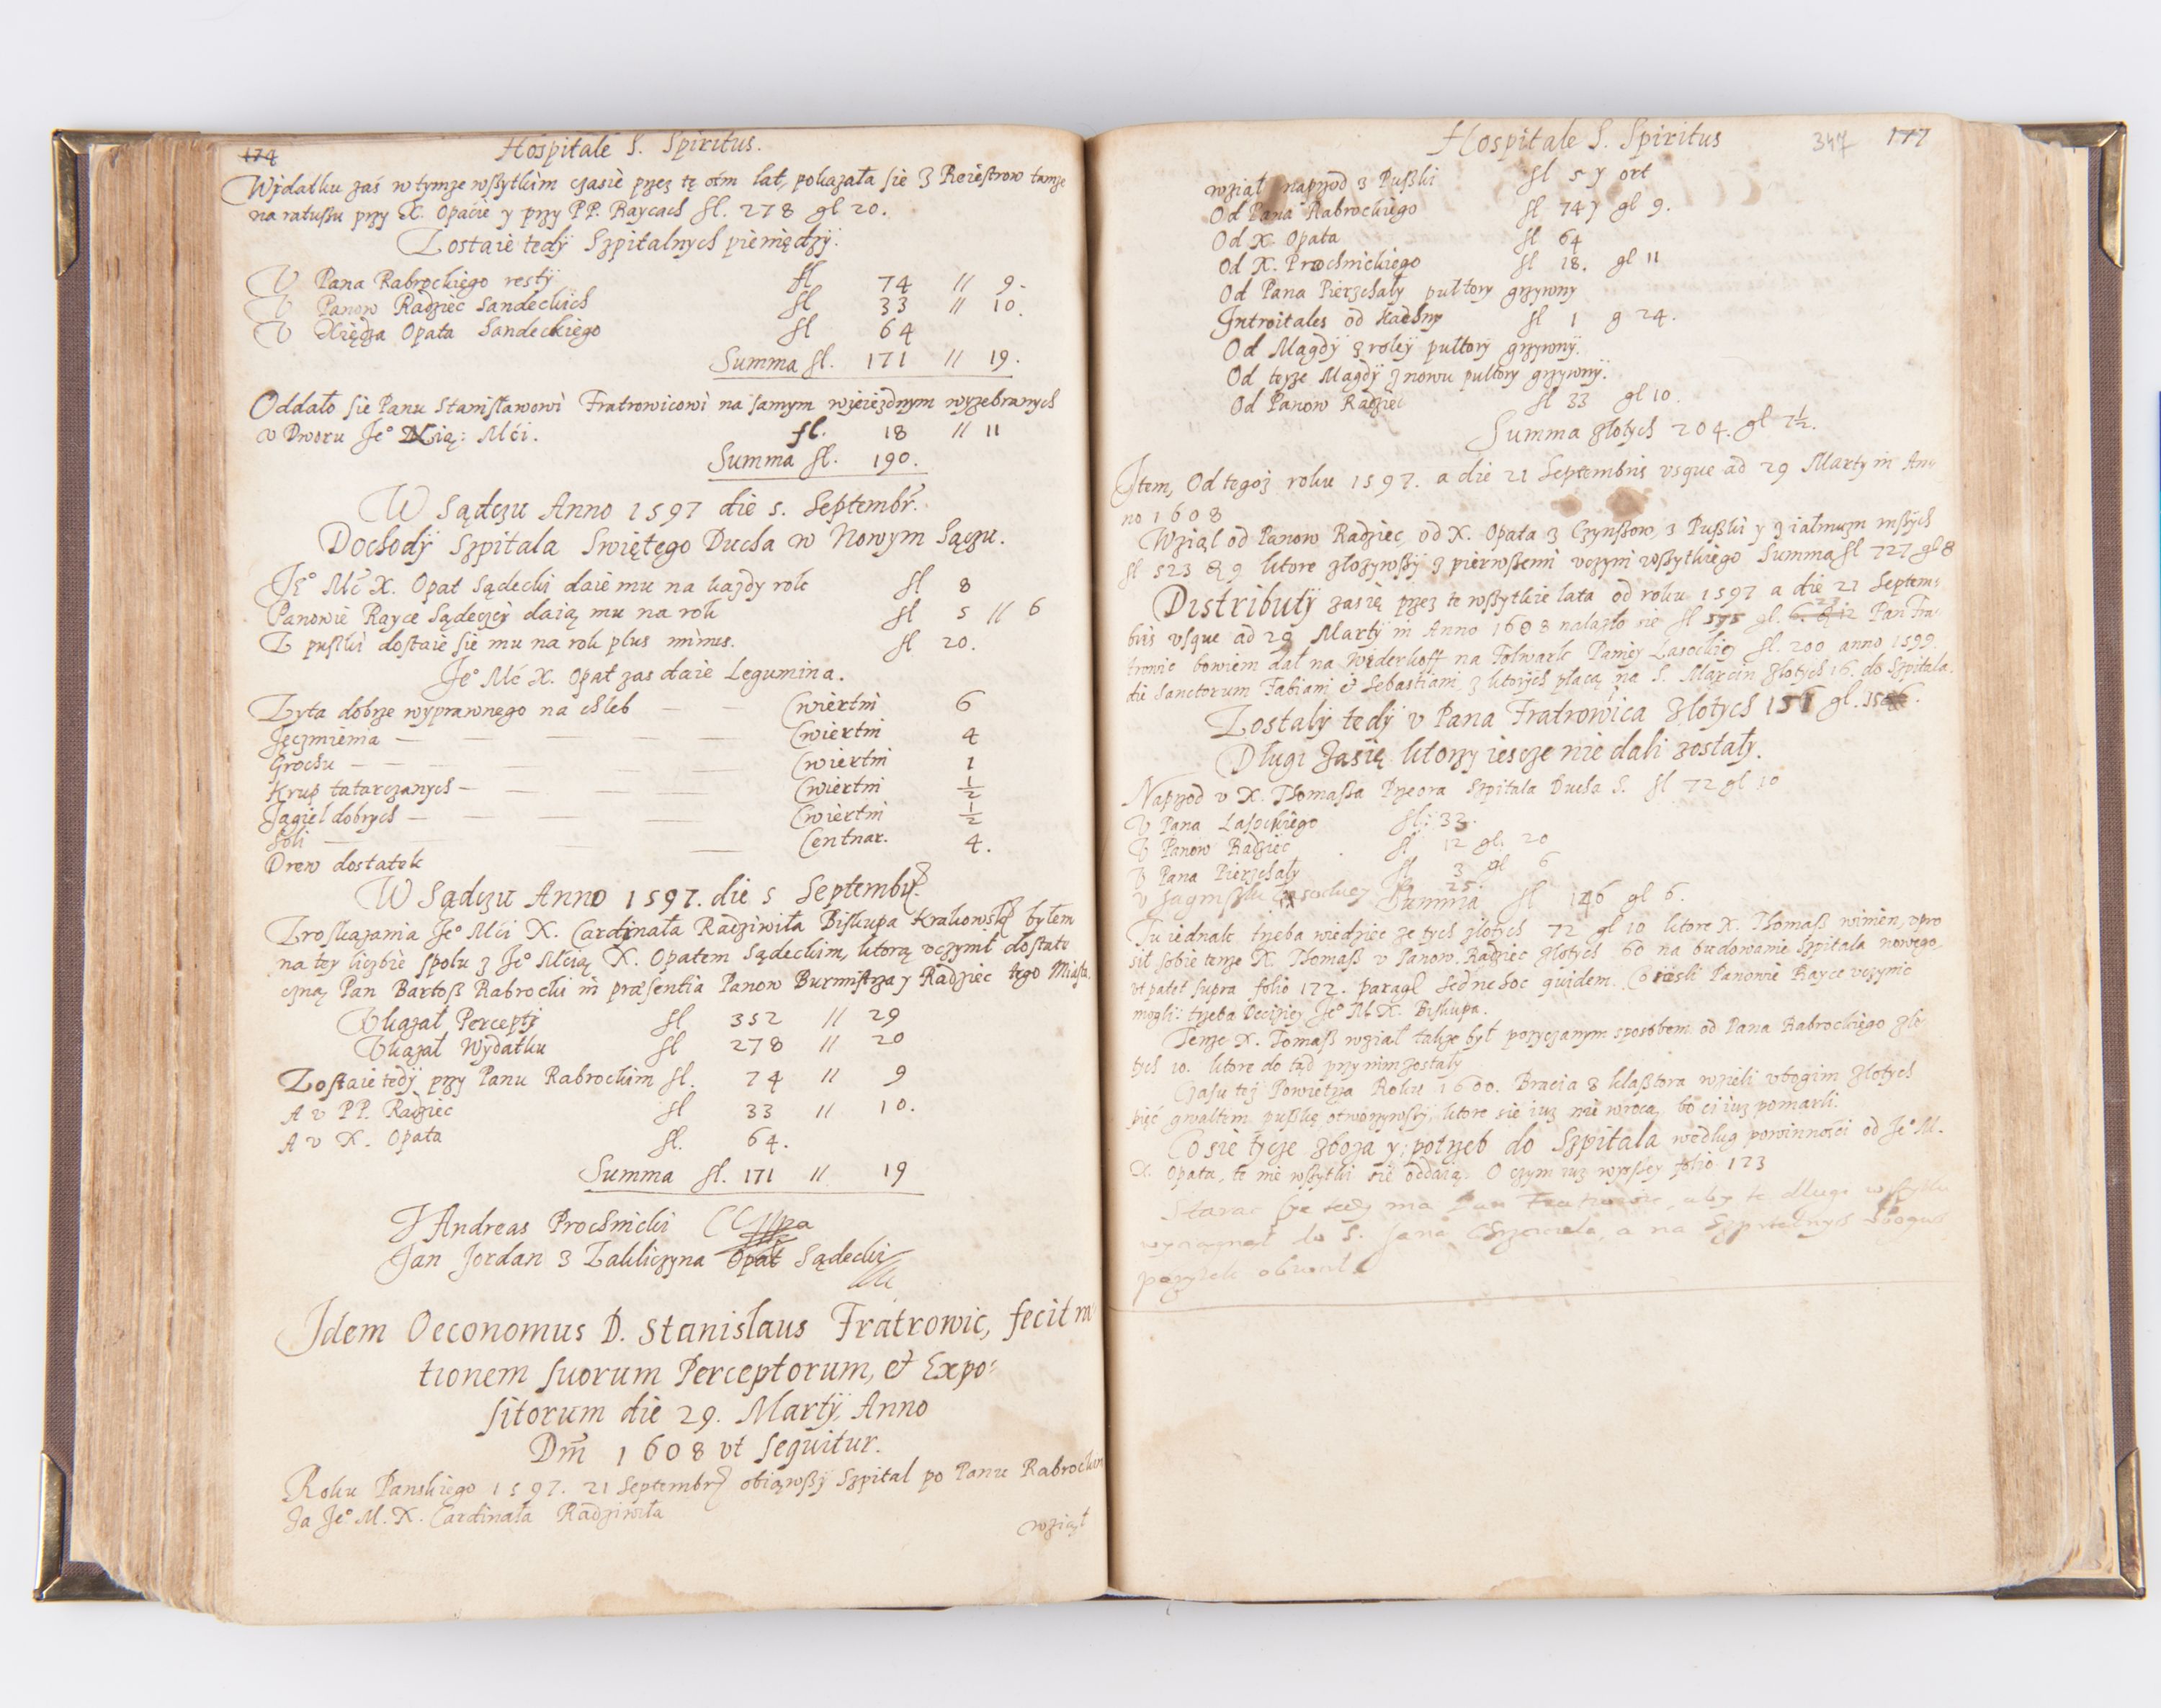 174
Hospitale S. Spiritus.
Wÿdatku zaś w tymze wszytkim czasie przez tę ośm lat, pokazała sie z Reiestrow tamze
na ratuszu przy X. Opacie y przy PP. Raycach fl. 278 gl 20.
Zostaie tedÿ Szpitalnych pieniędzÿ.
V Pana Rabrockiego restÿ fl 74 // 9.
V Panow Radziec Sandeckich fl 33 // 10.
V Xiędza Opata Sandeckiego fl 64
Summa fl. 171 // 19.
Oddało sie Panu Stanisławowi Fratrowicowi na samym wyiezdnym wyzebranych
v Dworu Je° Xią: Mći. fl. 18 // 11
Summa fl. 190.
W Sądczu Anno 1597 die 5. Septembr.
Dochodÿ Szpitala Swiętego Ducha w Nowym Sączu.
Je° Mć X. Opat Sądecki daie mu na kazdy rok fl 8
Panowie Rayce Sądeczcÿ daią mu na rok fl 5 // 6
Z puszki dostaie sie mu na rok plus minus. fl 20.
Je° Mć X. Opat zas daie Legumina.
Zyta dobrze wyprawnego na chleb — — Cwiertni 6
Jęczmienia — — — — — Cwiertni 4
Grochu — — — — — Cwiertni 1
Krup tatarczanych — — — — Cwiertni ½
Jagieł dobrych — — — — Cwiertni ½
Soli — — — — Centnar. 4.
Drew dostatek
W Sądczu Anno 1597. die 5 Septembr.
Z roskazania Je° Mći X. Cardinała Radziwiła Biskupa Krakowsk: byłem
na tey liczbie społu z Je° Mćią X. Opatem Sądeckim, ktorą vczynił dostate
czną Pan Bartosz Rabrocki in præsentia Panow Burmistrza y Radziec tego Miasta.
Vkazał Perceptÿ fl 352 // 29
Vkazał Wydatku fl 278 // 20
Zostaie tedÿ przy Panu Rabrockim fl. 74 // 9
A v PP. Radziec fl 33 // 10.
A v X. Opata fl. 64.
Summa fl. 171 // 19
J Andreas Prochnicki
Jan Jordan z Zakliczyna Opat Sądecki
Idem Oeconomus D. Stanislaus Fratrowic, fecit ra
tionem suorum Perceptorum, et Expo:
sitorum die 29. Martÿ, Anno
Dm̃ 1608 vt sequitur.
Roku Panskiego 1597. 21 Septembr. obiąwszÿ Szpital po Panu Rabrockim
Za Je° M. X. Cardinała Radziwiła
wziął
Hospitale S. Spiritus 347 177
wziął naprzod z Puszki fl 5 y ort
Od Pana Rabrockiego fl 74 y gl 9.
Od X. Opata fl 64
Od X. Prochnickiego fl 18. gl 11
Od Pana Pierzchały pułtory grzywny
Introitales od fl 1 g 24.
Od Magdÿ z roley pułtorÿ grzywnÿ.
Od teyze Magdÿ znowu pułtory grzywnÿ.
Od Panow Radziec fl 33 gl 10.
Summa złotych 204. gl 7½.
Item, Od tegoz roku 1597. a die 21 Septembris vsque ad 29 Marty in An
no 1608
Wziął od Panow Radziec, od X. Opata z Czynszow, z Puszki y z iałmuzn inszych
fl 523 & 9 ktore złozywszÿ z pierwszemi vczyni wszytkiego Summa fl 727 gl 8
Distributÿ zasię przez te wszytkie lata od roku 1597 a die 21 Septem:
bris vsque ad 29 Martÿ in Anno 1608 nalazło sie fl 575 gl. Pan Fra:
trowic bowiem dał na Widerkoff na Folwark Paniey Lasockiey fl. 200 anno 1599.
die Sanctorum Fabiani & Sebastiani z ktorych płacą na S. Marcin złotych 16. do Szpitala.
Zostałÿ tedÿ v Pana Fratrowica złotych 151 gl.
Długi zasię ktorzy iescze nie dali zostały.
Naprzod v X. Thomasza Przeora Szpitala Ducha S. fl 72 gl 10
V Pana Lasockiego fl: 33.
V Panow Radziec fl 12 gl: 20
V Pana Pierzchały fl 3 gl 6
v 25.
Summa fl 146 gl 6.
Tu iednak trzeba wiedziec ze tych złotych 72 gl 10 ktore X. Thomasz winien, vpro
sił sobie tenze X. Thomasz v Panow Radziec złotych 60 na budowanie Szpitala nowego,
vt patet supra folio 172. paragl Sed nec hoc quidem. Co iesli Panowie Rayce vczynic
mogli: trzeba Deciziey Je° M X. Biskupa.
Tenze X. Tomasz wziął takze był pozyczanym sposobem od Pana Rabrockiego zło
tych 10. ktore do tąd przy nim zostały
Czasu tez Powietrza Roku 1600. Bracia z klasztora wzieli vbogim złotych
pięć gwałtem puszkę otworzywszy, ktore sie iuz nie wrocą, bo ci iuz pomarli.
Co sie tycze zboza y potrzeb do Szpitala według powinnosci od Je° M.
X. Opata, te nie wszytki sie oddaią. O czym iuz wyzszey folio 173
Starac sie tedy ma Pan Fratrowic, aby te długi wszytkie
do S. Jana Chrzciciela, a na Szpitalnych vbogich
pozytek obracał